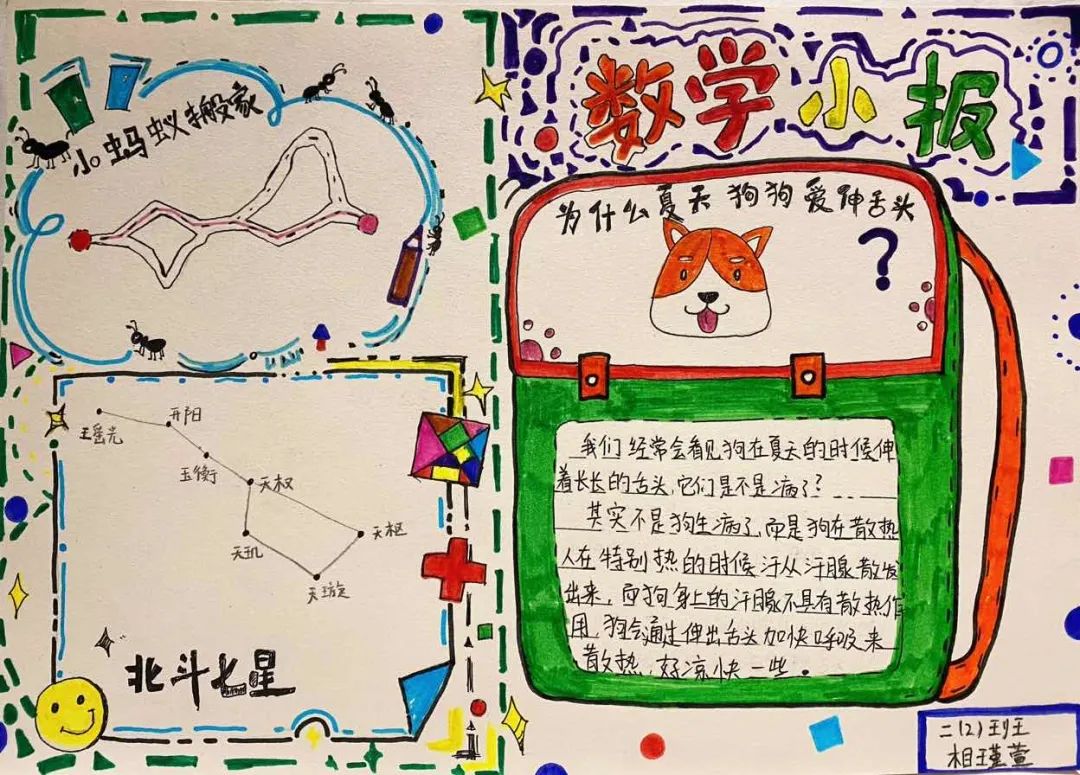 数学小报
小蚂蚁搬家
为什么夏天狗狗爱伸舌头
?
我们经常会看见狗在夏天的时候伸
着长长的舌头,它们是不是病了?
其实不是狗生病了,而是狗在散热
人在特别热的时候汗从汗腺散发
出来,而狗身上的汗腺不具有散热作
用,狗会通过伸出舌头加快呼吸来
散热,好凉快一些。
瑶光
开阳
玉衡
天权
天枢
天玑
天璇
北斗七星
二(2)班
相瑾萱